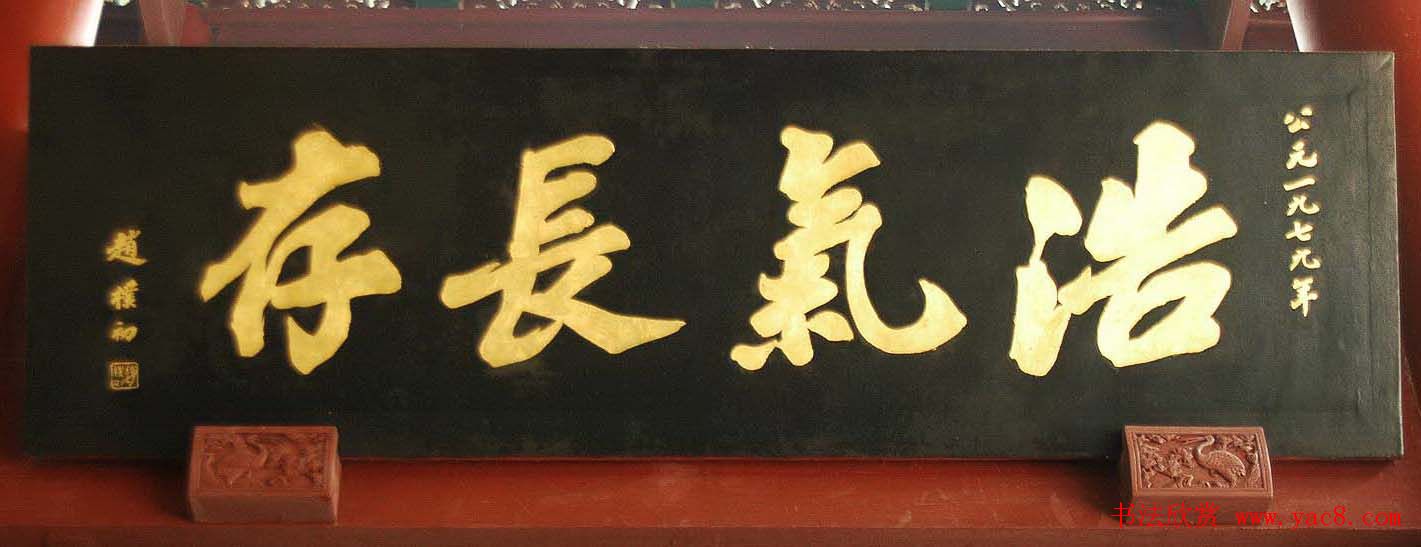 公元一九七九年
浩氣長存
趙樸初
书法欣赏 www.yac8.com